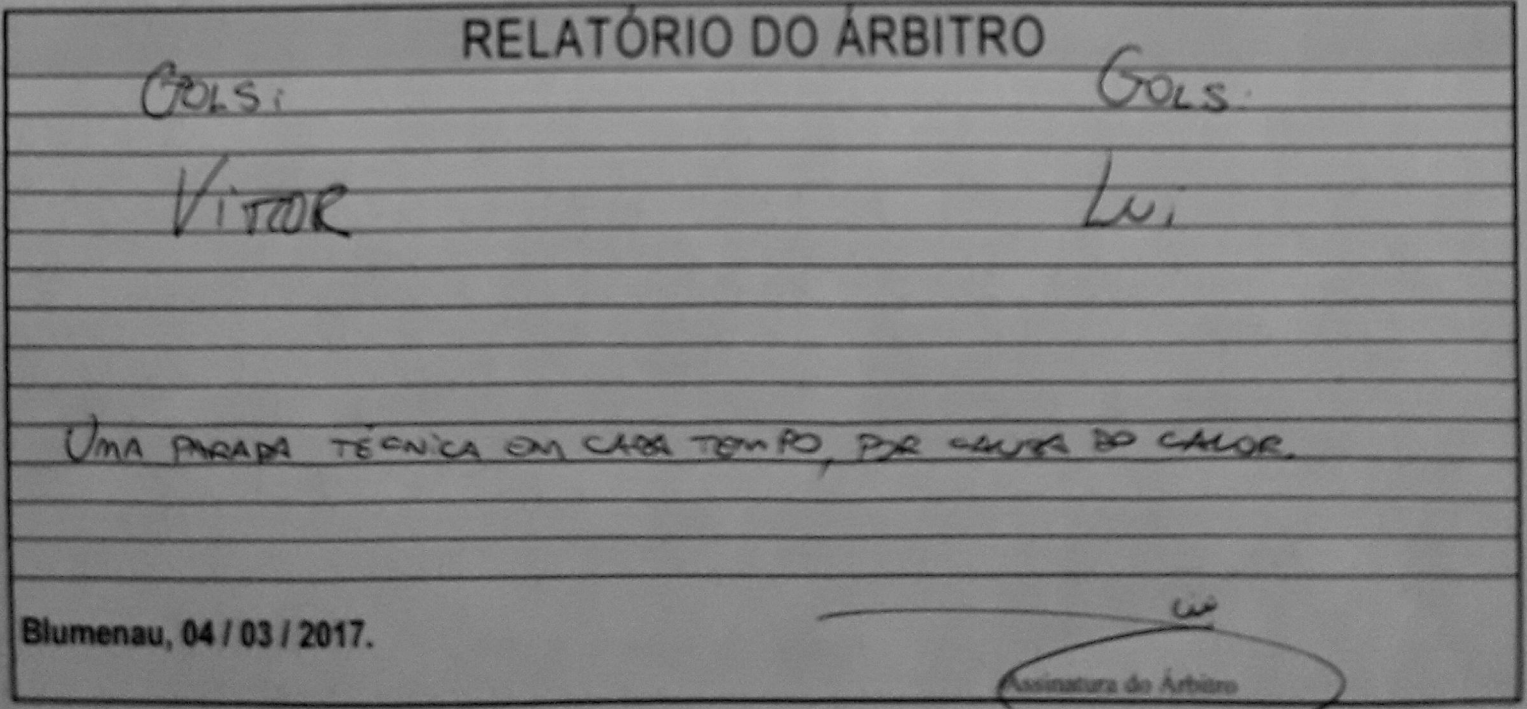 RELATÓRIO DO ÁRBITRO
GOLS: GOLS:
VITOR LUI
UMA PARADA TÉCNICA EM CADA TEMPO, POR CAUSA DO CALOR.
Blumenau, 04 / 03 / 2017.
Assinatura do Árbitro